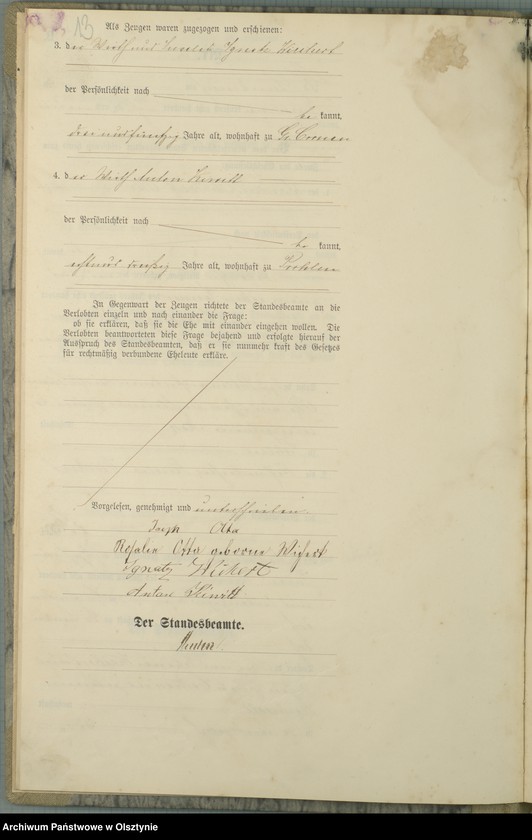 13
Als Zeugen waren zugezogen und erschienen:
3. der Wirth und Ignatz
der Persönlichkeit nach
be kannt,
drei und fünfzig Jahre alt, wohnhaft zu Gr. Cronau
4. der Wirth Anton
der Persönlichkeit nach
be kannt,
acht und dreißig Jahre alt, wohnhaft zu
In Gegenwart der Zeugen richtete der Standesbeamte an die
Verlobten einzeln und nach einander die Frage:
ob sie erklären, daß sie die Ehe mit einander eingehen wollen. Die
Verlobten beantworteten diese Frage bejahend und erfolgte hierauf der
Ausspruch des Standesbeamten, daß er sie nunmehr kraft des Gesetzes
für rechtmäßig verbundene Eheleute erkläre.
Vorgelesen, genehmigt und unterschrieben.
Joseph Otta
Rosalia Otta geborene
Ignatz
Anton
Der Standesbeamte.
Archiwum Państwowe w Olsztynie